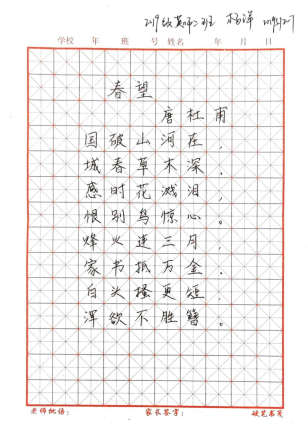 2019级英师2班 杨洋
学校 年 班 号 姓名 年 月 日
春望
唐杜甫
国破山河在，
城春草木深。
感时花溅泪，
恨别鸟惊心。
烽火连三月，
家书抵万金。
白头搔更短，
浑欲不胜簪。
老师批语： 家长签字： 硬笔书笺